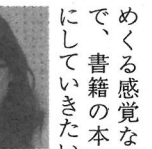 めくる感覚な
で、書籍の本
にしていきたい